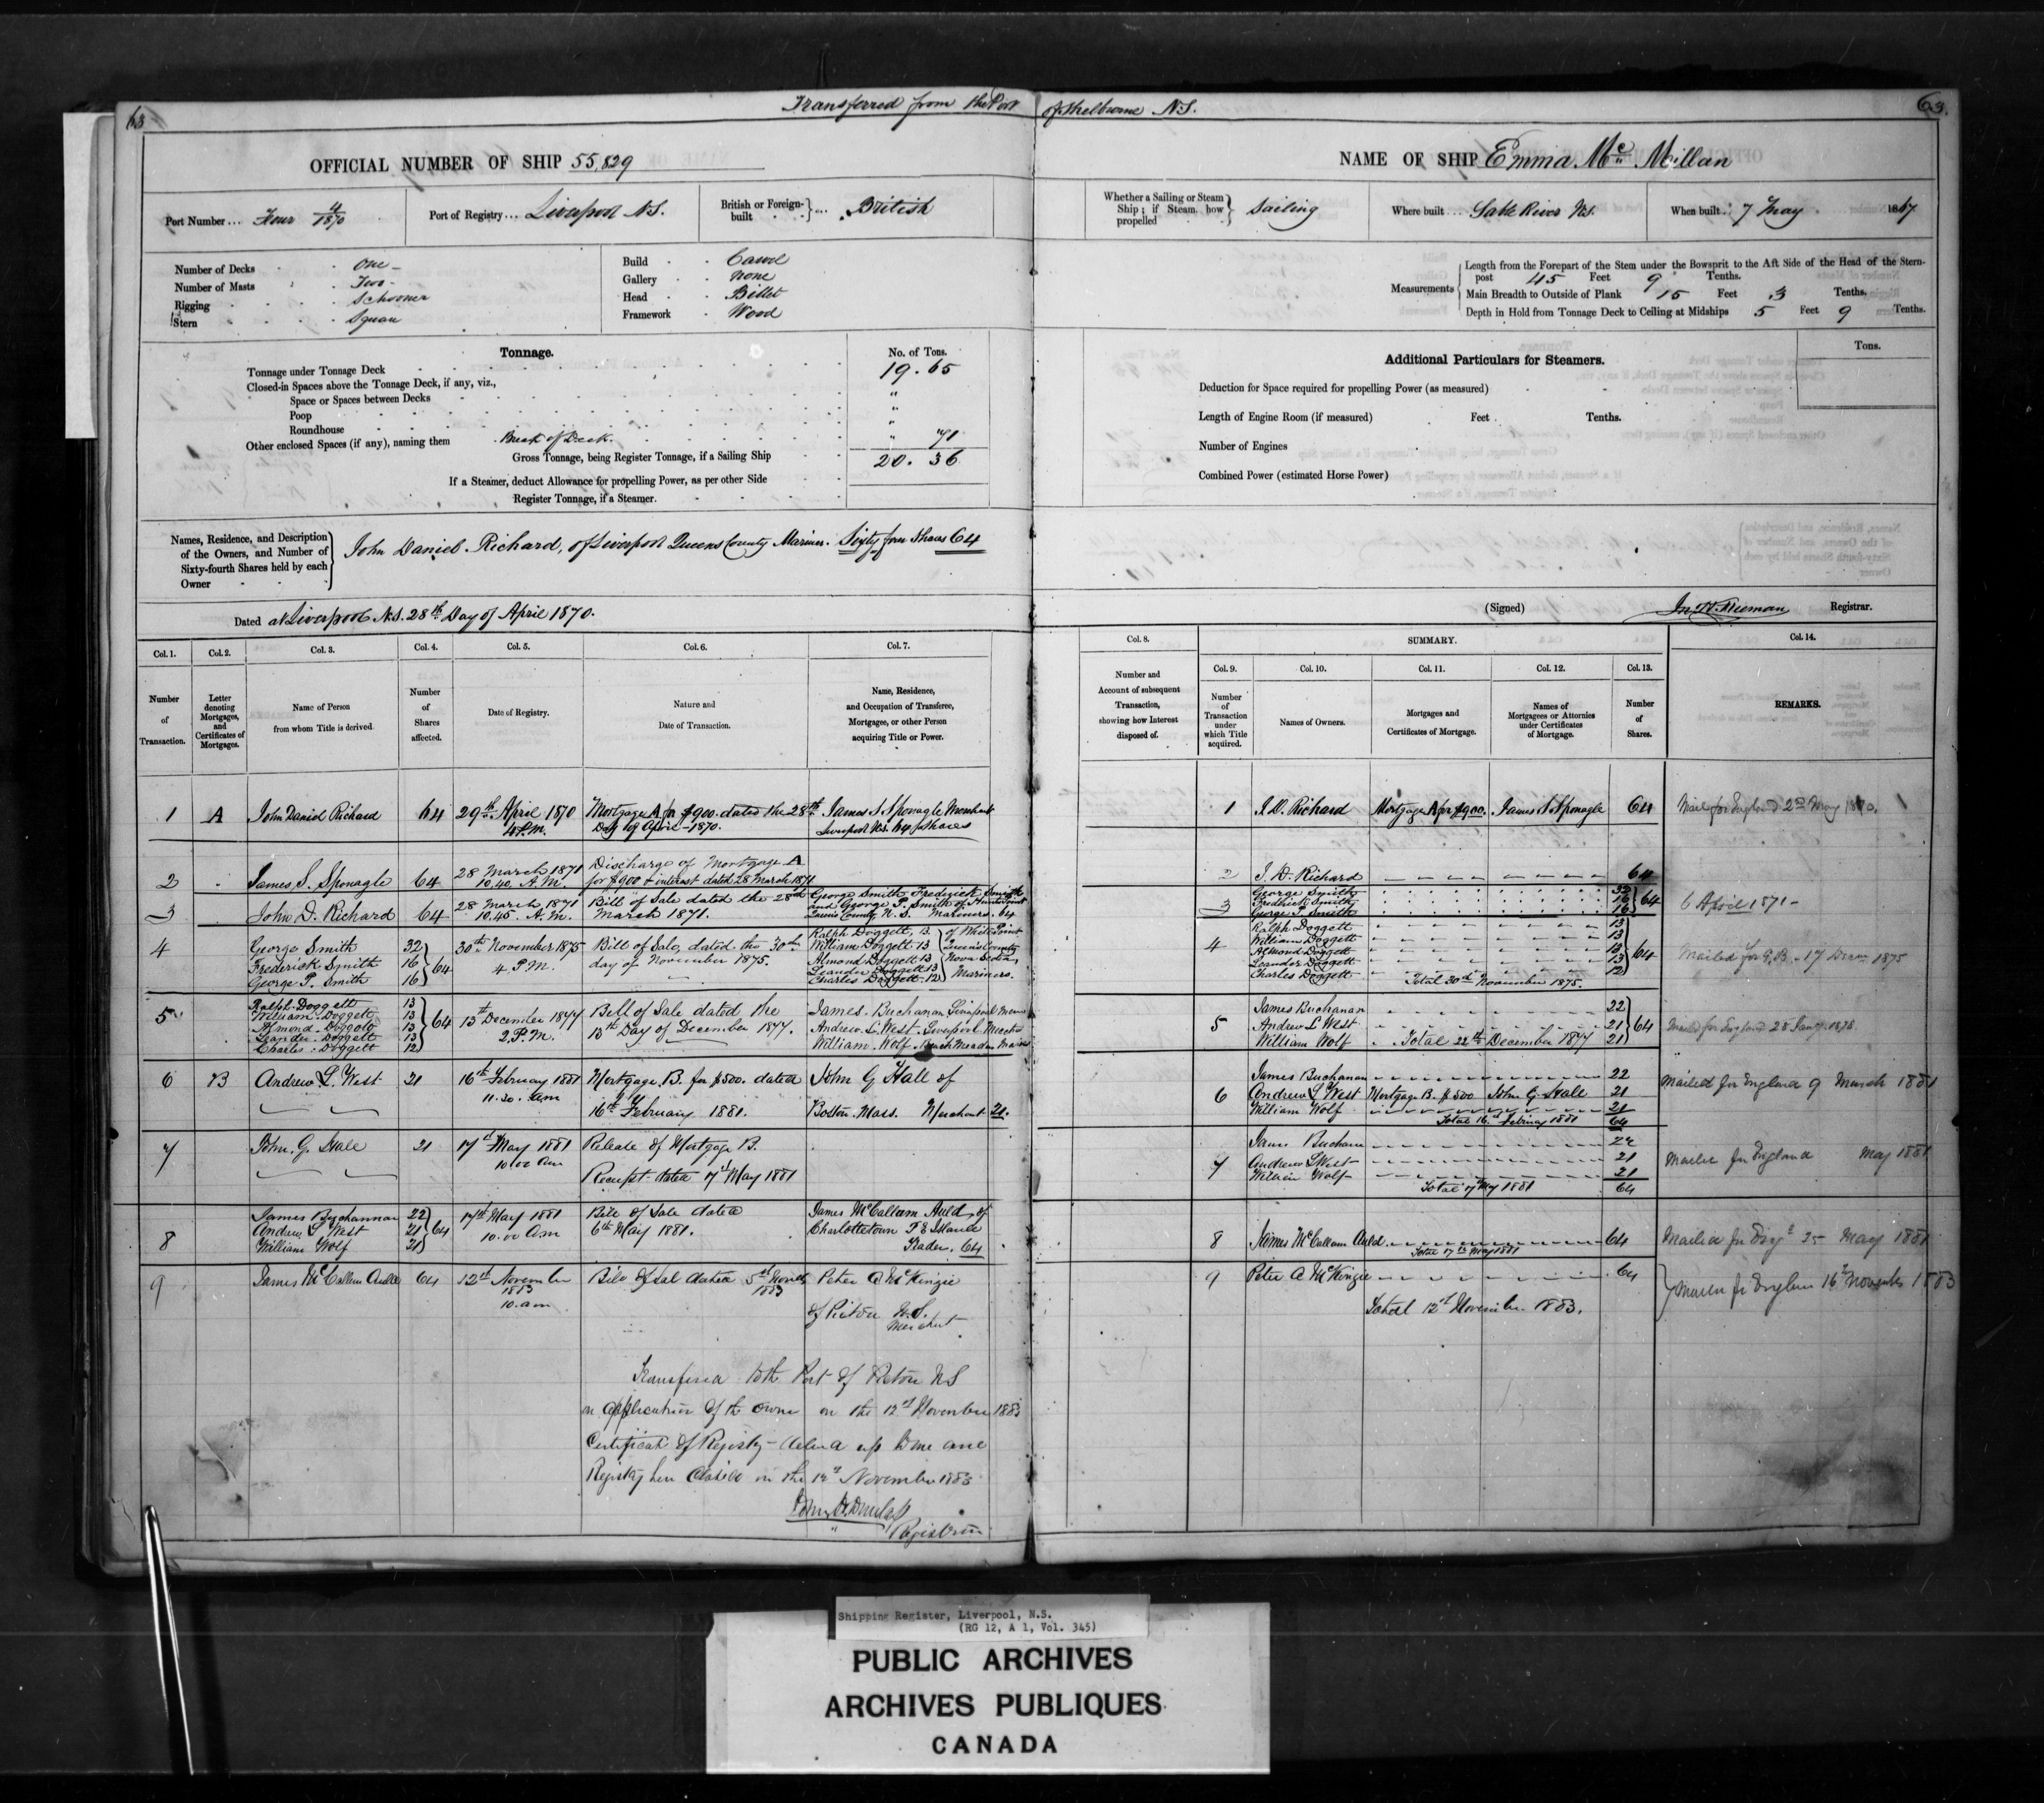 63 Transferred from the Port of Shelburne N.S. 63.
OFFICIAL NUMBER OF SHIP 55,829
Port Number... Four 4/1870 Port of Registry... Liverpool N.S. British or Foreign-built British
Number of Decks One
Number of Masts Two
Rigging Schooner
Stern Square
Build Carvel
Gallery None
Head Billet
Framework Wood
Tonnage. No. of Tons.
Tonnage under Tonnage Deck 19.65
Closed-in Spaces above the Tonnage Deck, if any, viz.,
Space or Spaces between Decks "
Poop "
Roundhouse "
Other enclosed Spaces (if any), naming them Break of Deck " 71
Gross Tonnage, being Register Tonnage, if a Sailing Ship 20.36
If a Steamer, deduct Allowance for propelling Power, as per other Side
Register Tonnage, if a Steamer.
Names, Residence, and Description of the Owners, and Number of Sixty-fourth Shares held by each Owner
John Daniel Richard, of Liverpool Queens County Mariner. Sixty four Shares 64
Dated at Liverpool N.S. 28th Day of April 1870.
NAME OF SHIP Emma Mc Millan
Whether a Sailing or Steam Ship; if Steam, how propelled Sailing Where built... Sable River N.S. When built 7 May 1867
Measurements
Length from the Forepart of the Stem under the Bowsprit to the Aft Side of the Head of the Stern-
post 45 Feet 9 Tenths.
Main Breadth to Outside of Plank 15 Feet 3 Tenths.
Depth in Hold from Tonnage Deck to Ceiling at Midships 5 Feet 9 Tenths.
Additional Particulars for Steamers. Tons.
Deduction for Space required for propelling Power (as measured)
Length of Engine Room (if measured) Feet Tenths.
Number of Engines
Combined Power (estimated Horse Power)
(Signed) Registrar.
Col. 1. Col. 2. Col. 3. Col. 4. Col. 5. Col. 6. Col. 7.
Number of Transaction.
Letter denoting Mortgages, and Certificates of Mortgages.
Name of Person from whom Title is derived.
Number of Shares affected.
Date of Registry.
Nature and Date of Transaction.
Name, Residence, and Occupation of Transferee, Mortgagee, or other Person acquiring Title or Power.
1 A John Daniel Richard 64 29th April 1870 4 P.M. Mortgage A for $900. dated the 28th Day of April 1870. James S Sponagle Merchant Liverpool N.S. 64 Shares
2 James S. Sponagle 64 28 March 1871 10.40. A.M. Discharge of Mortgage A for $900 & interest dated 28 March 1871
3 John D. Richard 64 28 March 1871 10.45. A.M. Bill of Sale dated the 28th March 1871. George Smith Frederick Smith and George P. Smith of Hunts Point Queens County N.S. Mariners. 64
4 George Smith 32 Frederick Smith 16 George P. Smith 16 64 30th November 1875 4 P.M. Bill of Sale, dated the 30th day of November 1875. Ralph Doggett, 13 William Doggett 13 Almond Doggett 13 Leander Doggett 13 Charles Doggett 12 of White Point Queens County Nova Scotia, Mariners.
5 Ralph Doggett 13 William Doggett 13 Almond Doggett 13 Leander Doggett 13 Charles Doggett 12 64 13th December 1877 2 P.M. Bill of Sale dated the 13th Day of December 1877. James Buchanan Liverpool Andrew L. West Liverpool William Wolf
6 B Andrew L. West 21 16th February 1881 11.30. am Mortgage B. for $500. dated 16th February 1881. John G Hall of Boston Mass. Merchant 21.
7 John G. Hall 21 17th May 1881 10.00 am Release of Mortgage B. Receipt dated 17th May 1881
8 James Buchannan 22 Andrew L West 21 William Wolf 21 64 17th May 1881 10.00 am Bill of Sale dated 6th May 1881. James McCallum Auld, of Charlottetown P E Island Trader, 64
9 James McCallum Auld 64 12th November 1883 10. am Bill of Sal dated 5th Novr 1883 Peter A McKinzie of Pictou N.S. Merchant
Transferred to the Port of Pictou N S
on application of the Owner on the 12th November 1883
Certificate of Registry
Registry here Closed on the 12th November 1883
Registrar
Col. 8. SUMMARY. Col. 14.
Col. 9. Col. 10. Col. 11. Col. 12. Col. 13.
Number and Account of subsequent Transaction, showing how Interest disposed of.
Number of Transaction under which Title acquired.
Names of Owners.
Mortgages and Certificates of Mortgage.
Names of Mortgagees or Attornies under Certificates of Mortgage.
Number of Shares.
REMARKS.
1 J. D. Richard Mortgage A for $900. James S Sponagle 64 Mail for England 2nd May 1870.
2 J. D. Richard 64
3 George Smith 32 Fredrick Smith 16 George P. Smith 16 64 6 April 1871
4 Ralph Doggett 13 William Doggett 13 Almond Doggett 13 Leander Doggett 13 Charles Doggett 12 64 Total 30th November 1875. Mailed for G.B. 17 Decr 1875
5 James Buchanan 22 Andrew L West 21 William Wolf 21 64 Total 22nd December 1877 Mailed for England 28 Jany 1878
6 James Buchanan 22 Andrew L West Mortgage B. $500 John G Hall 21 William Wolf 21 Total 16th February 1881 64 Mailed for England 9 March 1881
7 James Buchanan 22 Andrew L West 21 William Wolf 21 Total 17 May 1881 64 Mailed for England May 1881
8 James McCallum Auld 64 Total 17th May 1881 Mailed for Engd 25 May 1881
9 Peter A McKinzie 64 Total 12th November 1883. Mailed for England 16th November 1883
Shipping Register, Liverpool, N.S.
(RG 12, A 1, Vol. 345)
PUBLIC ARCHIVES
ARCHIVES PUBLIQUES
CANADA